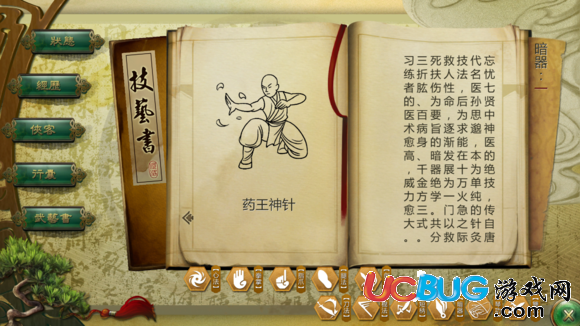 狀態
經歷
俠客
行囊
武藝書
技藝書
药王神针
暗器：一
忘忧七贤中神医的绝技，传自唐
代名医孙思邈，本为单纯的针灸
技法，后为求能在十万火急之际
救人性命，逐渐发展为一门以救
死扶伤为要旨的暗器绝学。共分
三折肱、百病身、千金方三式。
习练者的医术愈高，威力愈大。
UCBUG游戏网
.com